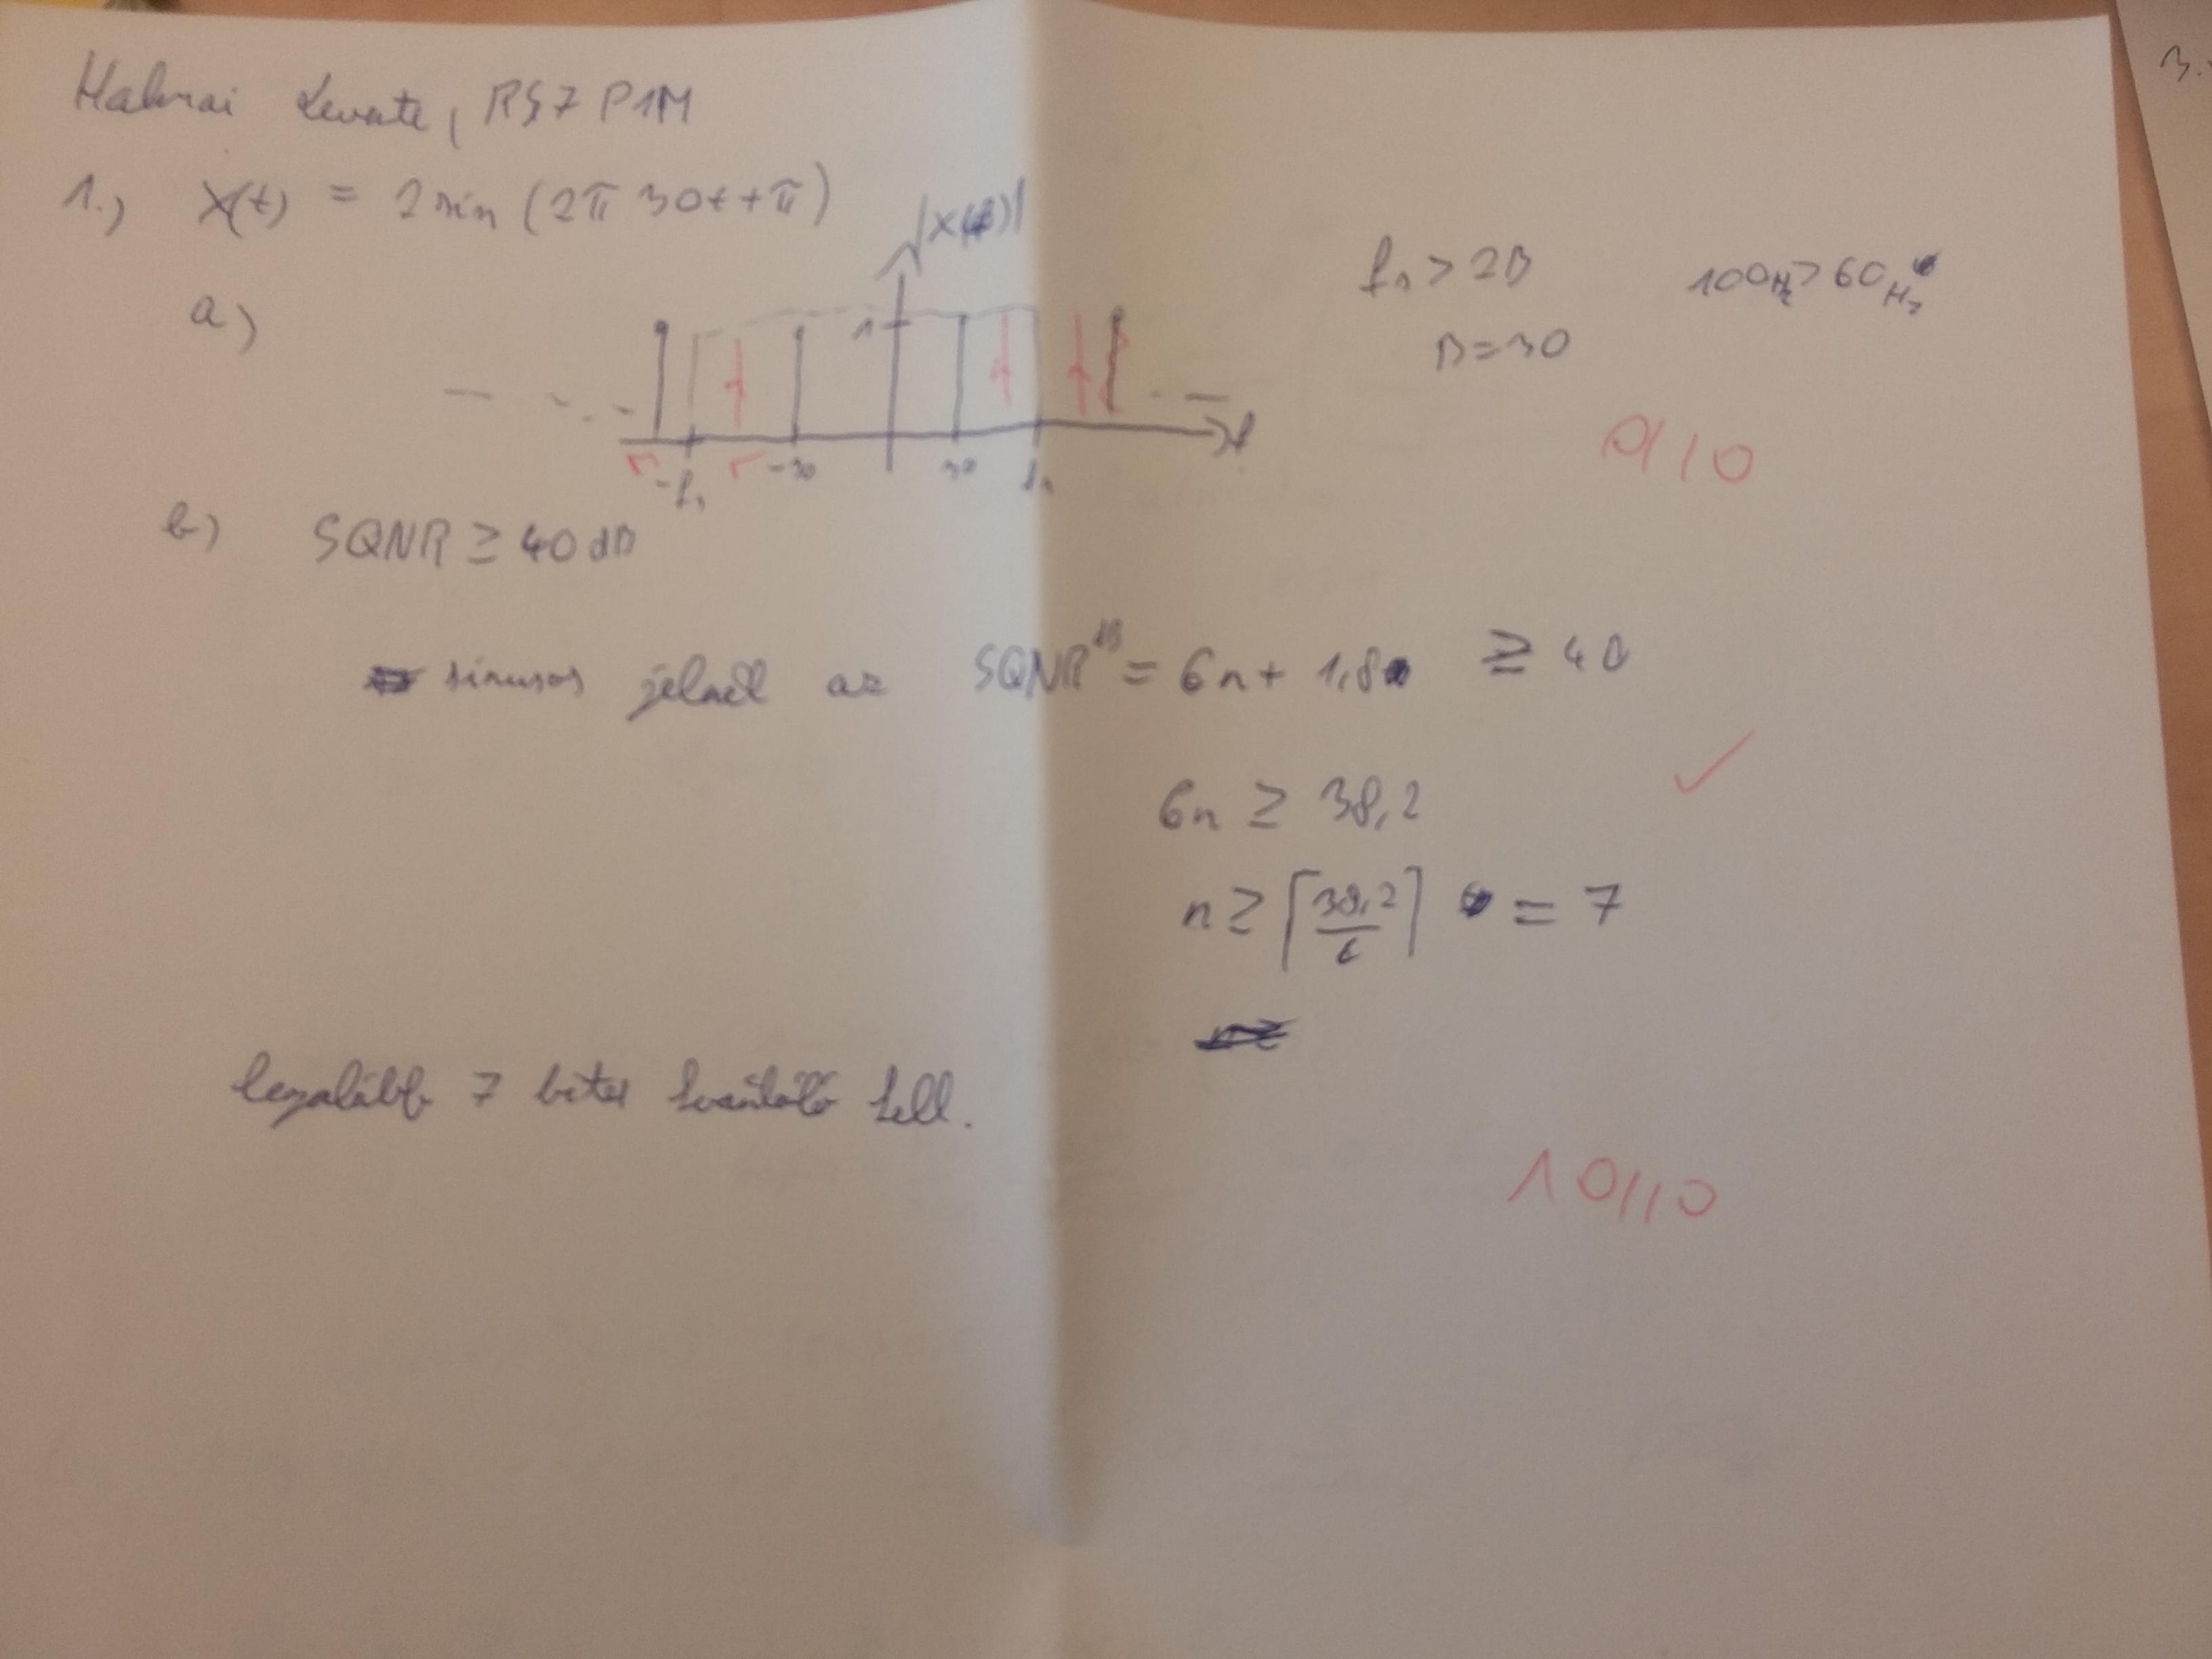 Halmai Levente, RS7P1M
1.) X(t) = 2 sin (2π 30t + π)
|X(f)|
a)
1
-fs -30 30 fs f
fs > 2B 100Hz > 60Hz
B = 30
0/10
b) SQNR ≥ 40 dB
sinusos jelnél az SQNR^dB = 6n + 1,8 ≥ 40
6n ≥ 38,2
n ≥ ⌈38,2/6⌉ = 7
legalább 7 bites kvantáló kell.
10/10